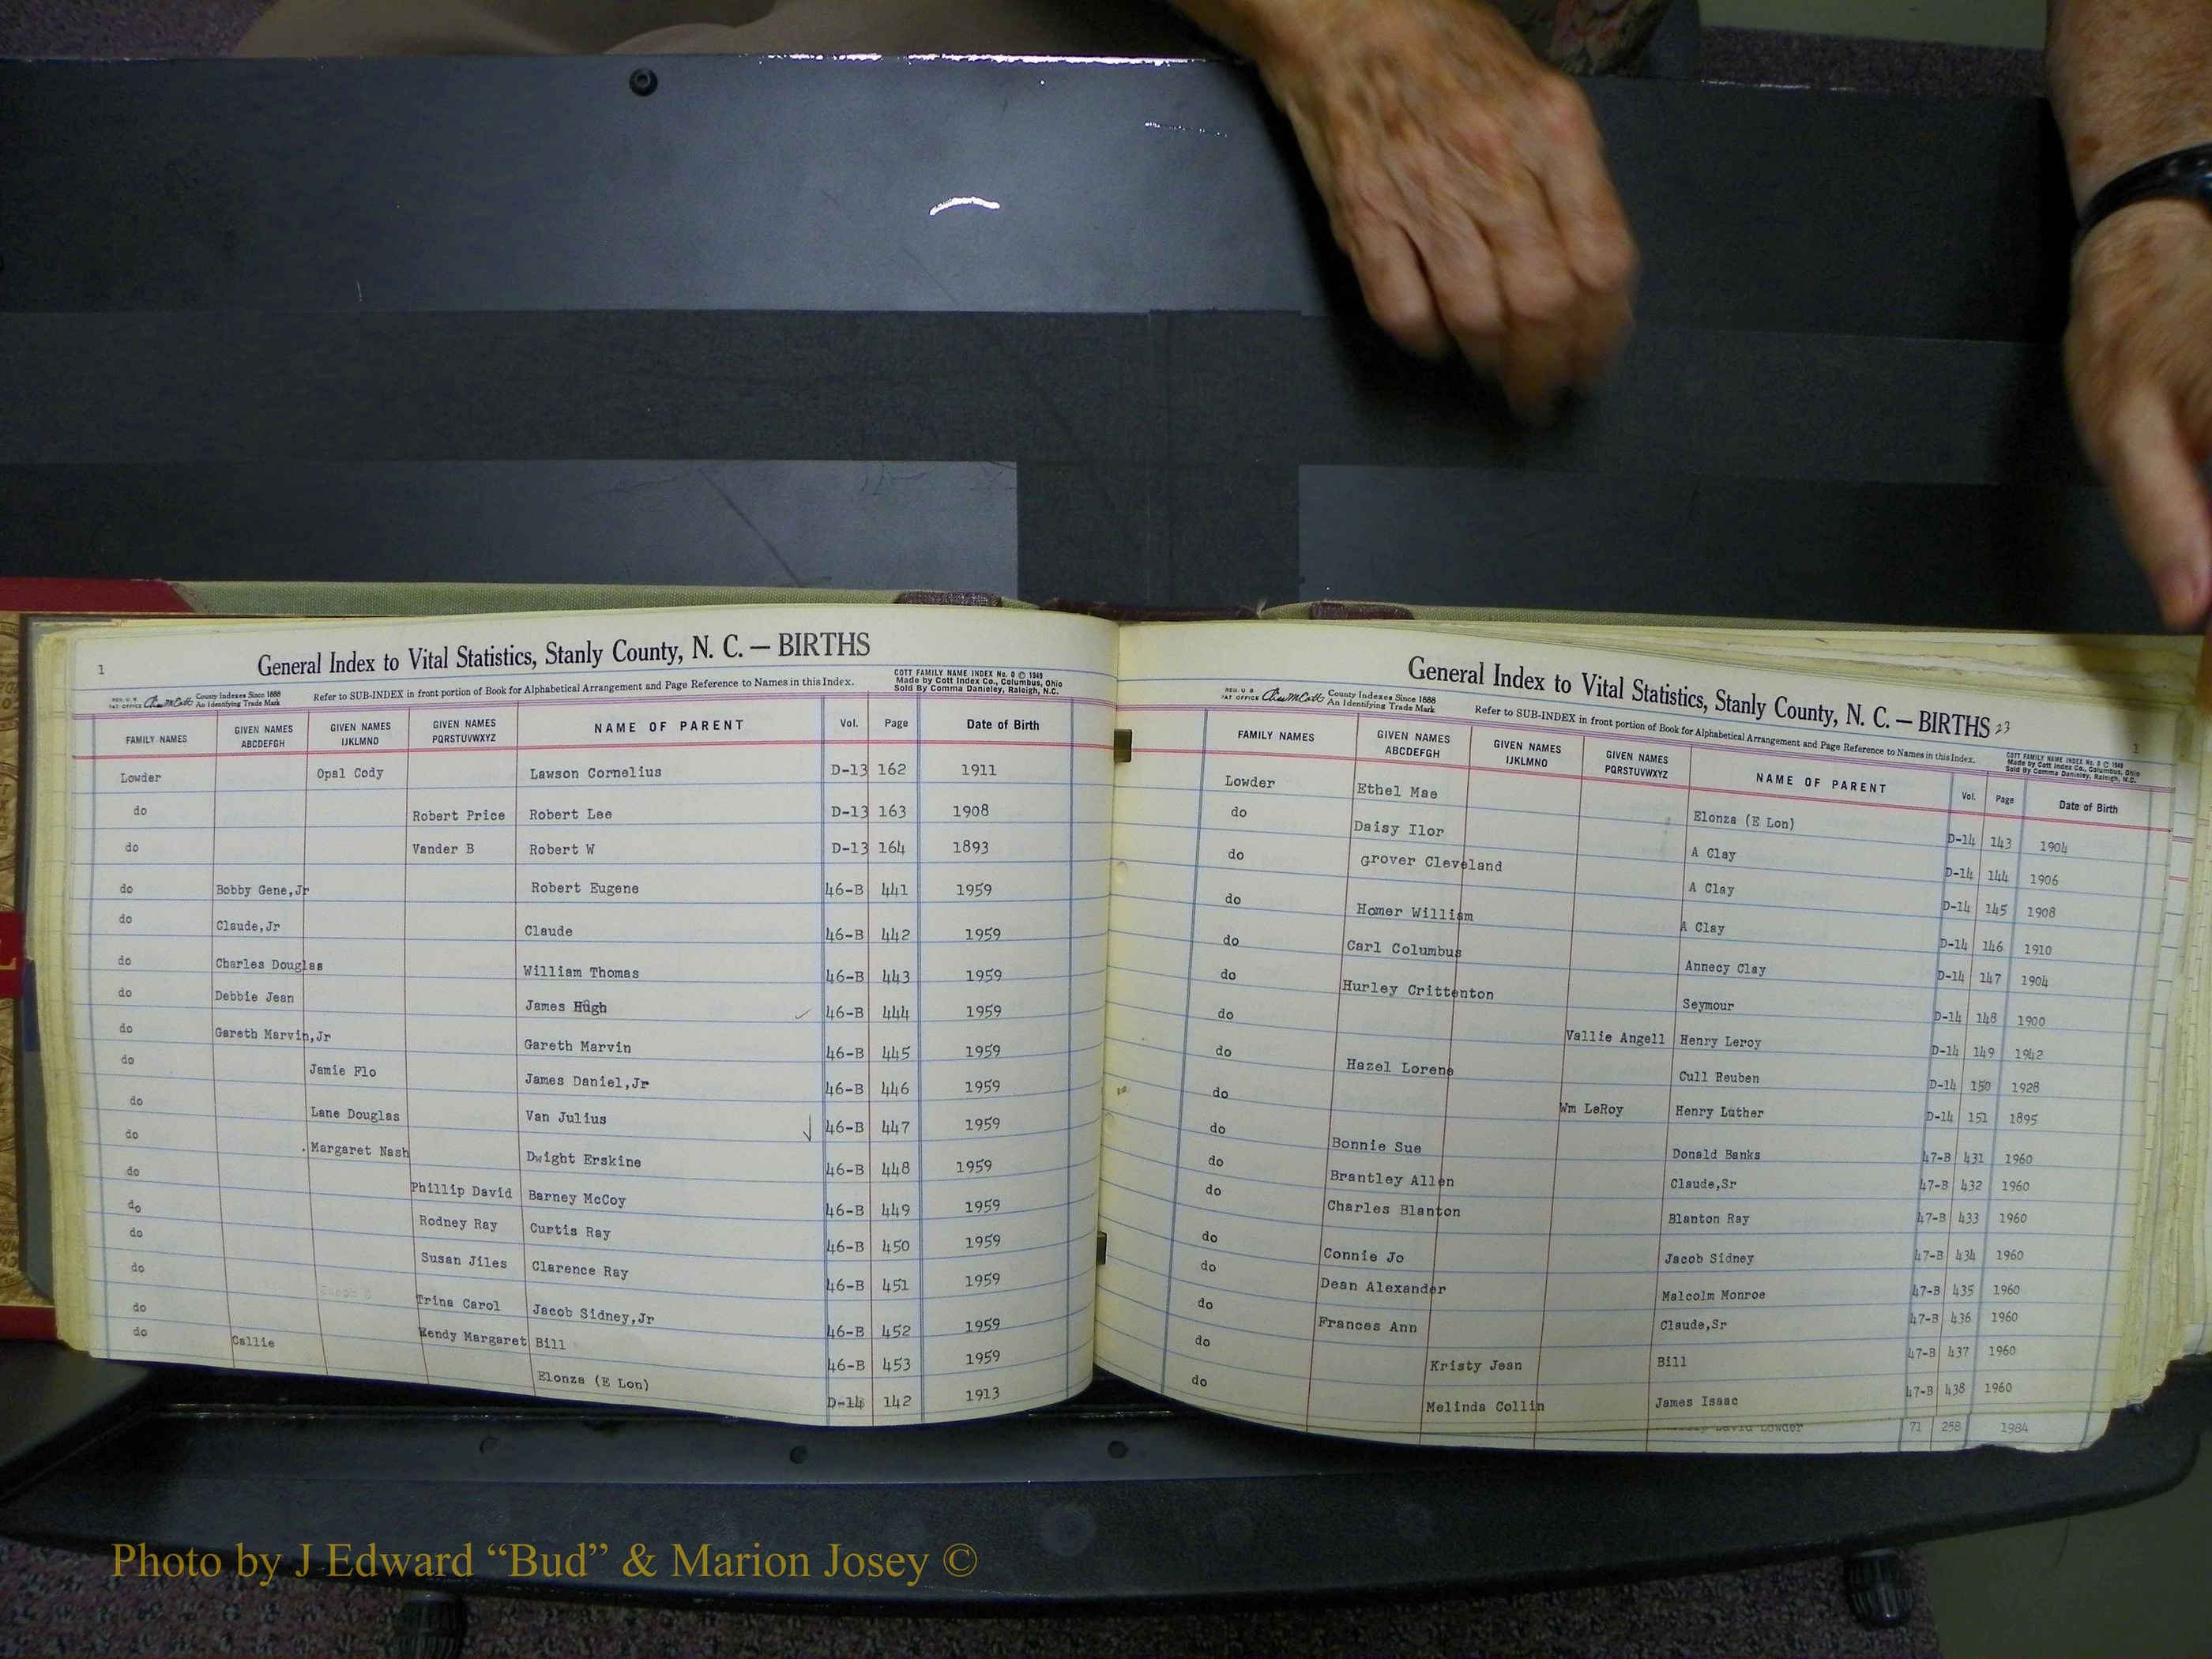 1
General Index to Vital Statistics, Stanly County, N. C. — BIRTHS
REG. U. S. PAT OFFICE County Indexes Since 1888 An Identifying Trade Mark
Refer to SUB-INDEX in front portion of Book for Alphabetical Arrangement and Page Reference to Names in this Index.
COTT FAMILY NAME INDEX No. 0 © 1949
Made by Cott Index Co., Columbus, Ohio
Sold By Comma Danieley, Raleigh, N.C.
FAMILY NAMES GIVEN NAMES ABCDEFGH GIVEN NAMES IJKLMNO GIVEN NAMES PQRSTUVWXYZ NAME OF PARENT Vol. Page Date of Birth
Lowder Opal Cody Lawson Cornelius D-13 162 1911
do Robert Price Robert Lee D-13 163 1908
do Vander B Robert W D-13 164 1893
do Bobby Gene,Jr Robert Eugene 46-B 441 1959
do Claude,Jr Claude 46-B 442 1959
do Charles Douglas William Thomas 46-B 443 1959
do Debbie Jean James Hugh 46-B 444 1959
do Gareth Marvin,Jr Gareth Marvin 46-B 445 1959
do Jamie Flo James Daniel,Jr 46-B 446 1959
do Lane Douglas Van Julius 46-B 447 1959
do Margaret Nash Dwight Erskine 46-B 448 1959
do Phillip David Barney McCoy 46-B 449 1959
do Rodney Ray Curtis Ray 46-B 450 1959
do Susan Jiles Clarence Ray 46-B 451 1959
do Trina Carol Jacob Sidney,Jr 46-B 452 1959
do Wendy Margaret Bill 46-B 453 1959
do Callie Elonza (E Lon) D-14 142 1913
General Index to Vital Statistics, Stanly County, N. C. — BIRTHS 23
1
REG. U S PAT OFFICE County Indexes Since 1888 An Identifying Trade Mark
Refer to SUB-INDEX in front portion of Book for Alphabetical Arrangement and Page Reference to Names in this Index.
COTT FAMILY NAME INDEX No. 0 © 1949
Made by Cott Index Co., Columbus, Ohio
Sold By Comma Danieley, Raleigh, N.C.
FAMILY NAMES GIVEN NAMES ABCDEFGH GIVEN NAMES IJKLMNO GIVEN NAMES PQRSTUVWXYZ NAME OF PARENT Vol. Page Date of Birth
Lowder Ethel Mae Elonza (E Lon) D-14 143 1904
do Daisy Ilor A Clay D-14 144 1906
do Grover Cleveland A Clay D-14 145 1908
do Homer William A Clay D-14 146 1910
do Carl Columbus Annecy Clay D-14 147 1904
do Hurley Crittenton Seymour D-14 148 1900
do Vallie Angell Henry Leroy D-14 149 1942
do Hazel Lorene Cull Reuben D-14 150 1928
do Wm LeRoy Henry Luther D-14 151 1895
do Bonnie Sue Donald Banks 47-B 431 1960
do Brantley Allen Claude,Sr 47-B 432 1960
do Charles Blanton Blanton Ray 47-B 433 1960
do Connie Jo Jacob Sidney 47-B 434 1960
do Dean Alexander Malcolm Monroe 47-B 435 1960
do Frances Ann Claude,Sr 47-B 436 1960
do Kristy Jean Bill 47-B 437 1960
do Melinda Collin James Isaac 47-B 438 1960
David Lowder 71 258 1984
Photo by J Edward “Bud” & Marion Josey ©